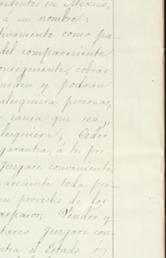 sidentes en México,
a su nombre:
tivamente como pa-
del compareciente
onsiguiente, cobrar
ueden y podran
alesquiera personas,
r causa que sea
lesquiera. Ceder
garantia, á la pri-
juzgare conveniente,
pareciente toda
en provecho de los
Vender y
juzgare con
Estado ó